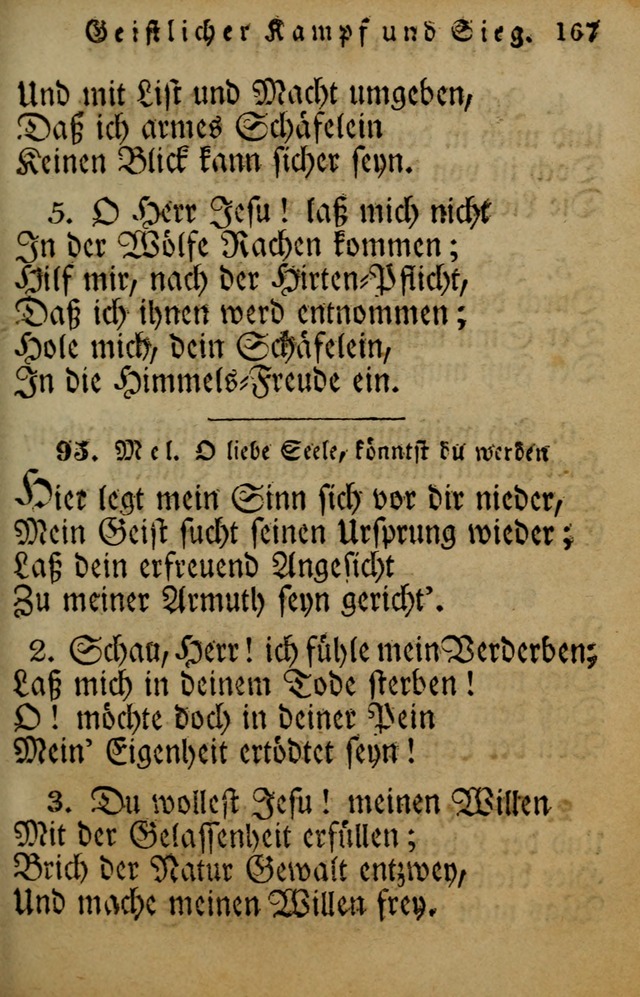 Geistlicher Kampf und Sieg. 167
Und mit List und Macht umgeben,
Daß ich armes Schäfelein
Keinen Blick kann sicher seyn.
5. O Herr Jesu! laß mich nicht
In der Wölfe Rachen kommen;
Hilf mir, nach der Hirten-Pflicht,
Daß ich ihnen werd entnommen;
Hole mich, dein Schäfelein,
In die Himmels-Freude ein.
93. Mel. O liebe Seele, könntst du werden
Hier legt mein Sinn sich vor dir nieder,
Mein Geist sucht seinen Ursprung wieder;
Laß dein erfreuend Angesicht
Zu meiner Armuth seyn gericht'.
2. Schau, Herr! ich fühle mein Verderben;
Laß mich in deinem Tode sterben!
O! möchte doch in deiner Pein
Mein' Eigenheit ertödtet seyn!
3. Du wollest Jesu! meinen Willen
Mit der Gelassenheit erfüllen;
Brich der Natur Gewalt entzwey,
Und mache meinen Willen frey.